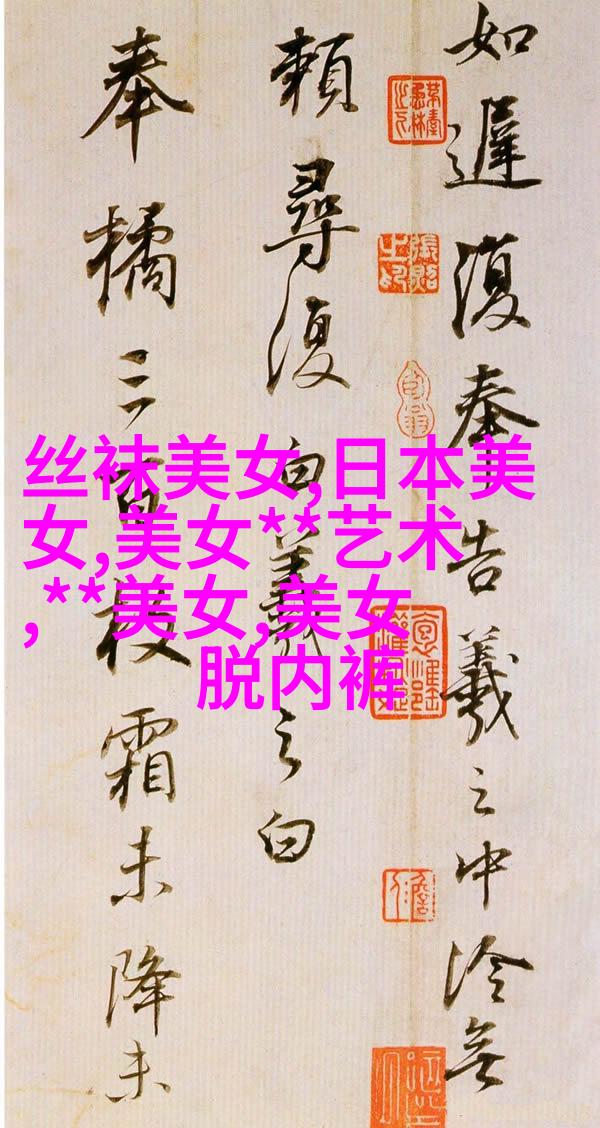 如遲復奉告羲之中冷無
賴尋復白羲之白
奉橘三百枚霜未降未
丝袜美女,日本美
女,美女**艺术
,**美女,美女
脱内裤